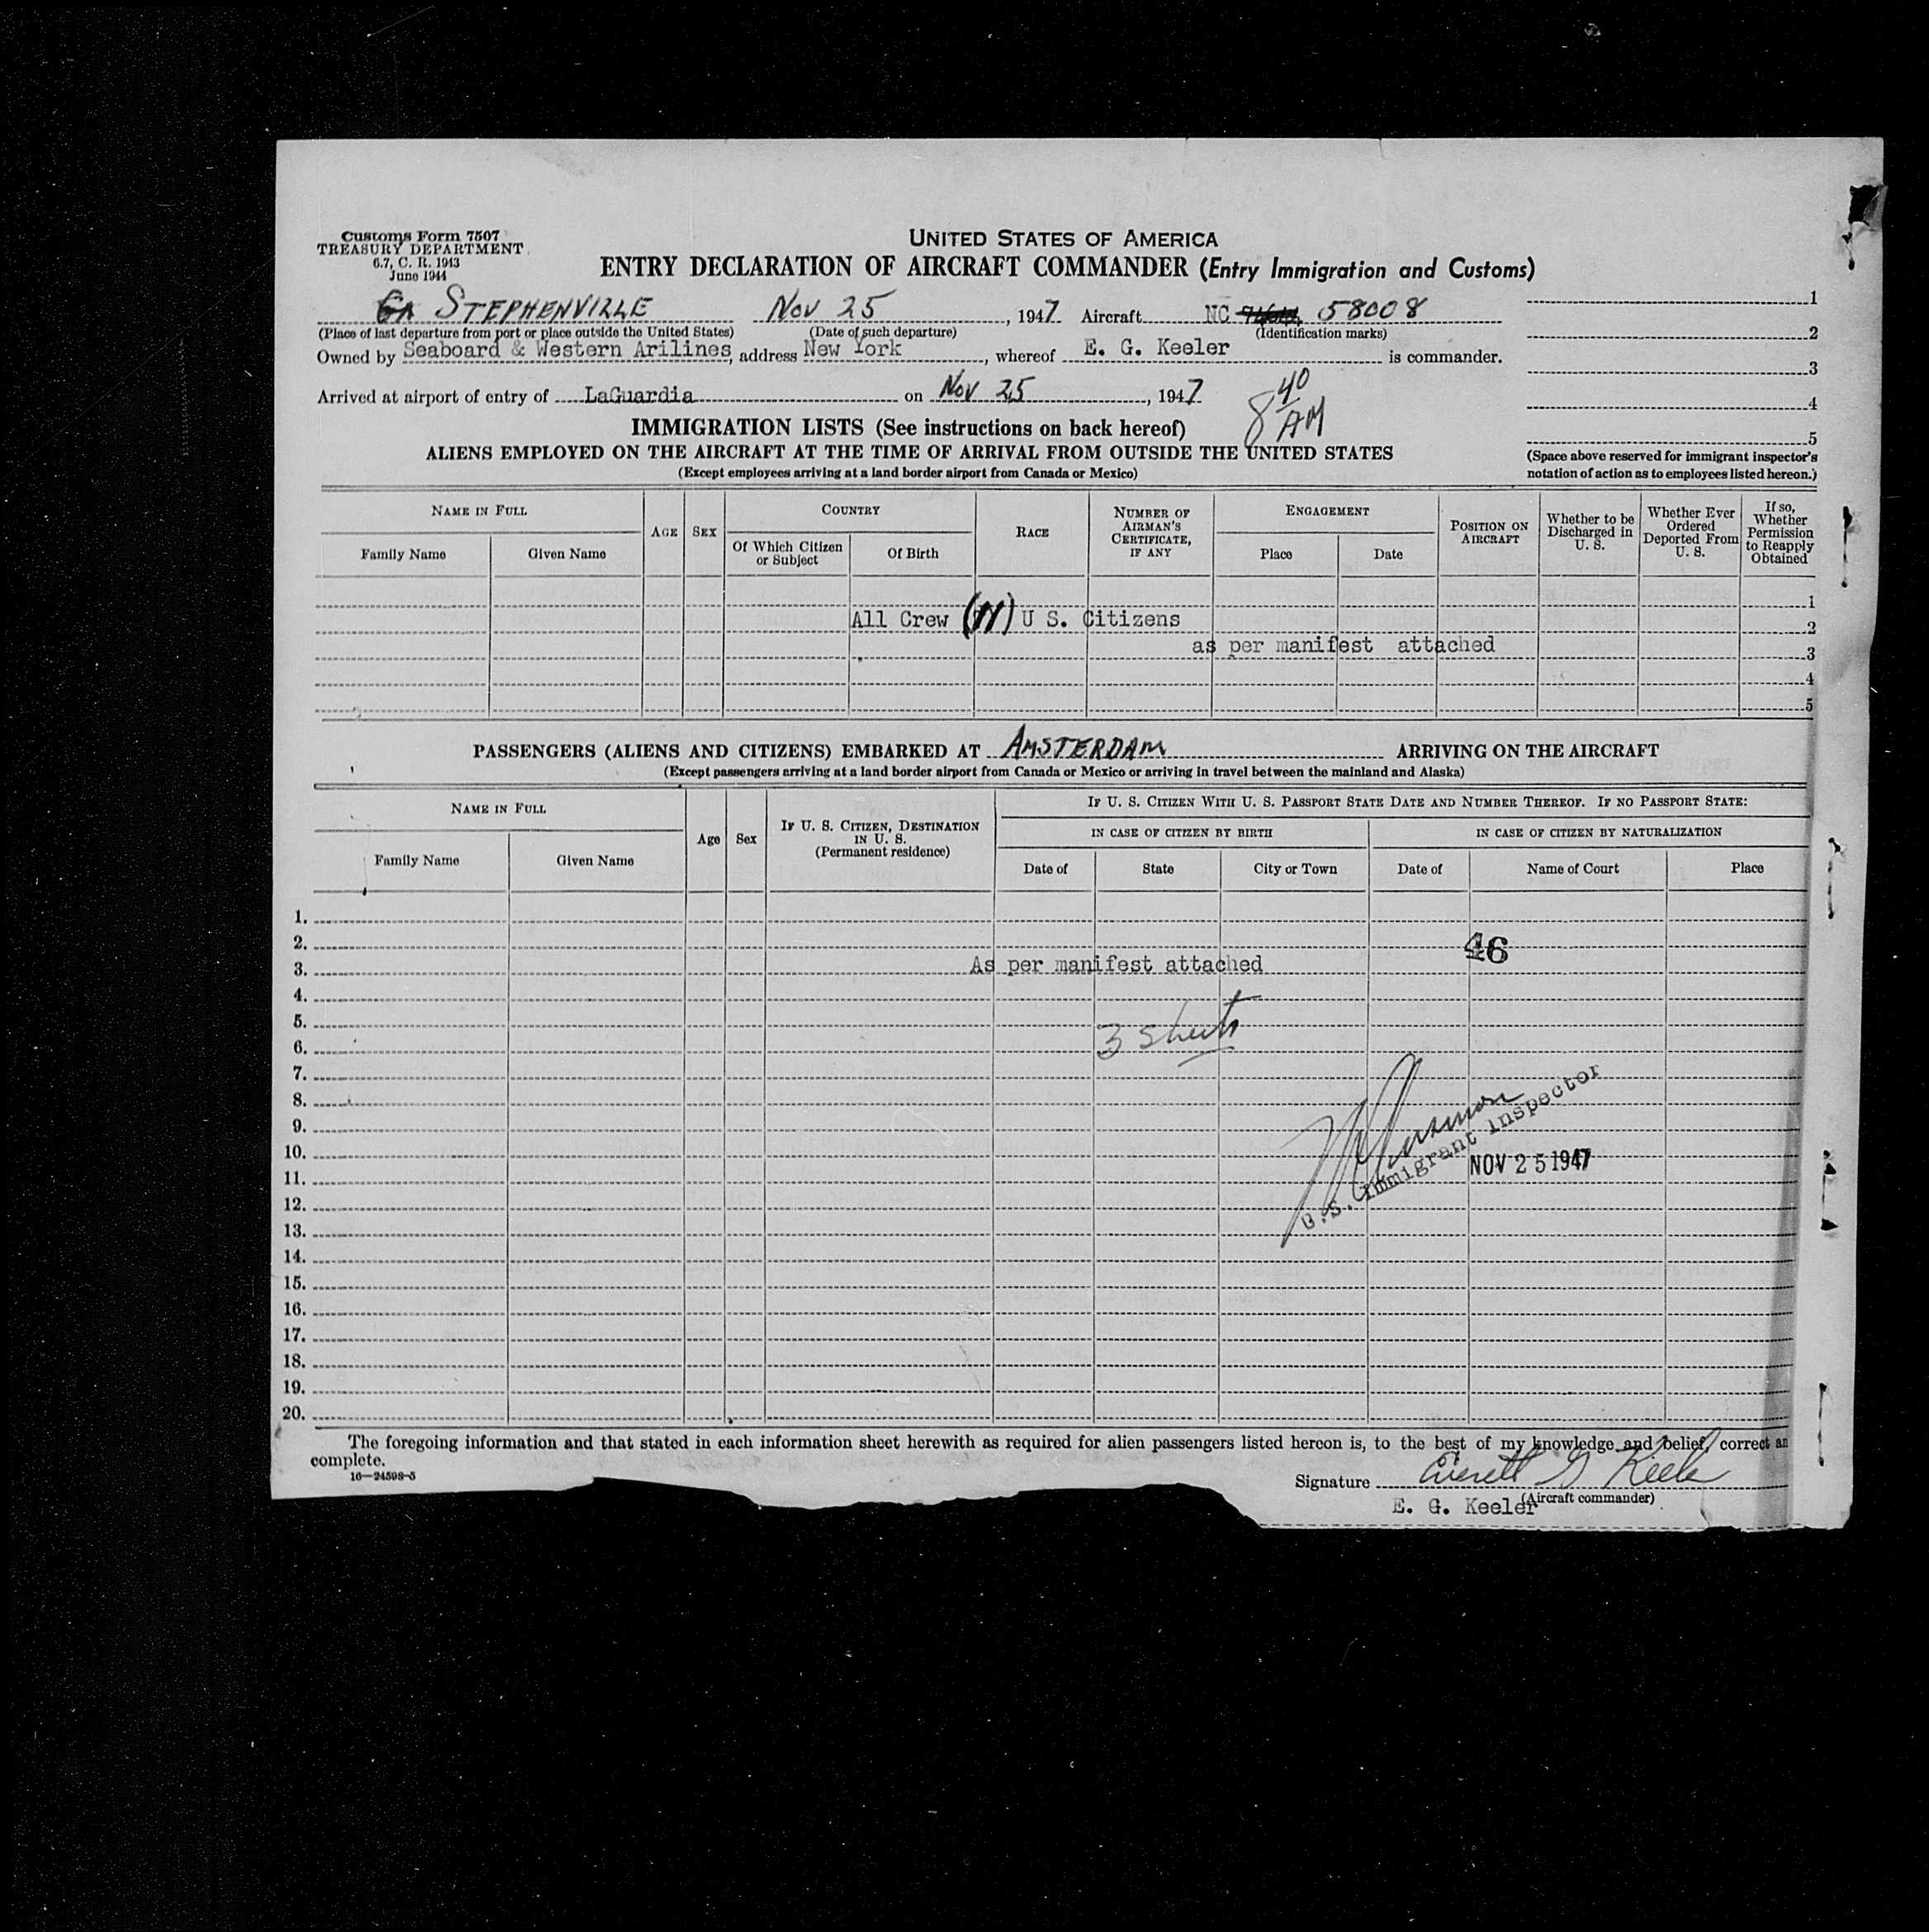 Customs Form 7507
TREASURY DEPARTMENT
6.7, C. R. 1943
June 1944
UNITED STATES OF AMERICA
ENTRY DECLARATION OF AIRCRAFT COMMANDER (Entry Immigration and Customs)
STEPHENVILLE Nov 25, 1947 Aircraft NC 58008
(Place of last departure from port or place outside the United States) (Date of such departure) (Identification marks)
Owned by Seaboard & Western Arilines, address New York, whereof E. G. Keeler is commander.
Arrived at airport of entry of LaGuardia on Nov 25, 1947
8 40 AM
1
2
3
4
5
(Space above reserved for immigrant inspector's
notation of action as to employees listed hereon.)
IMMIGRATION LISTS (See instructions on back hereof)
ALIENS EMPLOYED ON THE AIRCRAFT AT THE TIME OF ARRIVAL FROM OUTSIDE THE UNITED STATES
(Except employees arriving at a land border airport from Canada or Mexico)
NAME IN FULL
Family Name
Given Name
AGE
SEX
COUNTRY
Of Which Citizen or Subject
Of Birth
RACE
NUMBER OF AIRMAN'S CERTIFICATE, IF ANY
ENGAGEMENT
Place
Date
POSITION ON AIRCRAFT
Whether to be Discharged in U. S.
Whether Ever Ordered Deported From U. S.
If so, Whether Permission to Reapply Obtained
1
All Crew (11) U S. Citizens 2
as per manifest attached 3
4
5
PASSENGERS (ALIENS AND CITIZENS) EMBARKED AT AMSTERDAM ARRIVING ON THE AIRCRAFT
(Except passengers arriving at a land border airport from Canada or Mexico or arriving in travel between the mainland and Alaska)
NAME IN FULL
Family Name
Given Name
Age
Sex
IF U. S. CITIZEN, DESTINATION IN U. S.
(Permanent residence)
IF U. S. CITIZEN WITH U. S. PASSPORT STATE DATE AND NUMBER THEREOF. IF NO PASSPORT STATE:
IN CASE OF CITIZEN BY BIRTH
IN CASE OF CITIZEN BY NATURALIZATION
Date of
State
City or Town
Date of
Name of Court
Place
1.
2. 46
3. As per manifest attached
4.
5. 3 sheets
6.
7.
8.
9.
10.
U.S. Immigrant Inspector
NOV 25 1947
11.
12.
13.
14.
15.
16.
17.
18.
19.
20.
The foregoing information and that stated in each information sheet herewith as required for alien passengers listed hereon is, to the best of my knowledge and belief, correct an
complete.
16—24598-5
Signature Everett G Keeler
(Aircraft commander)
E. G. Keeler